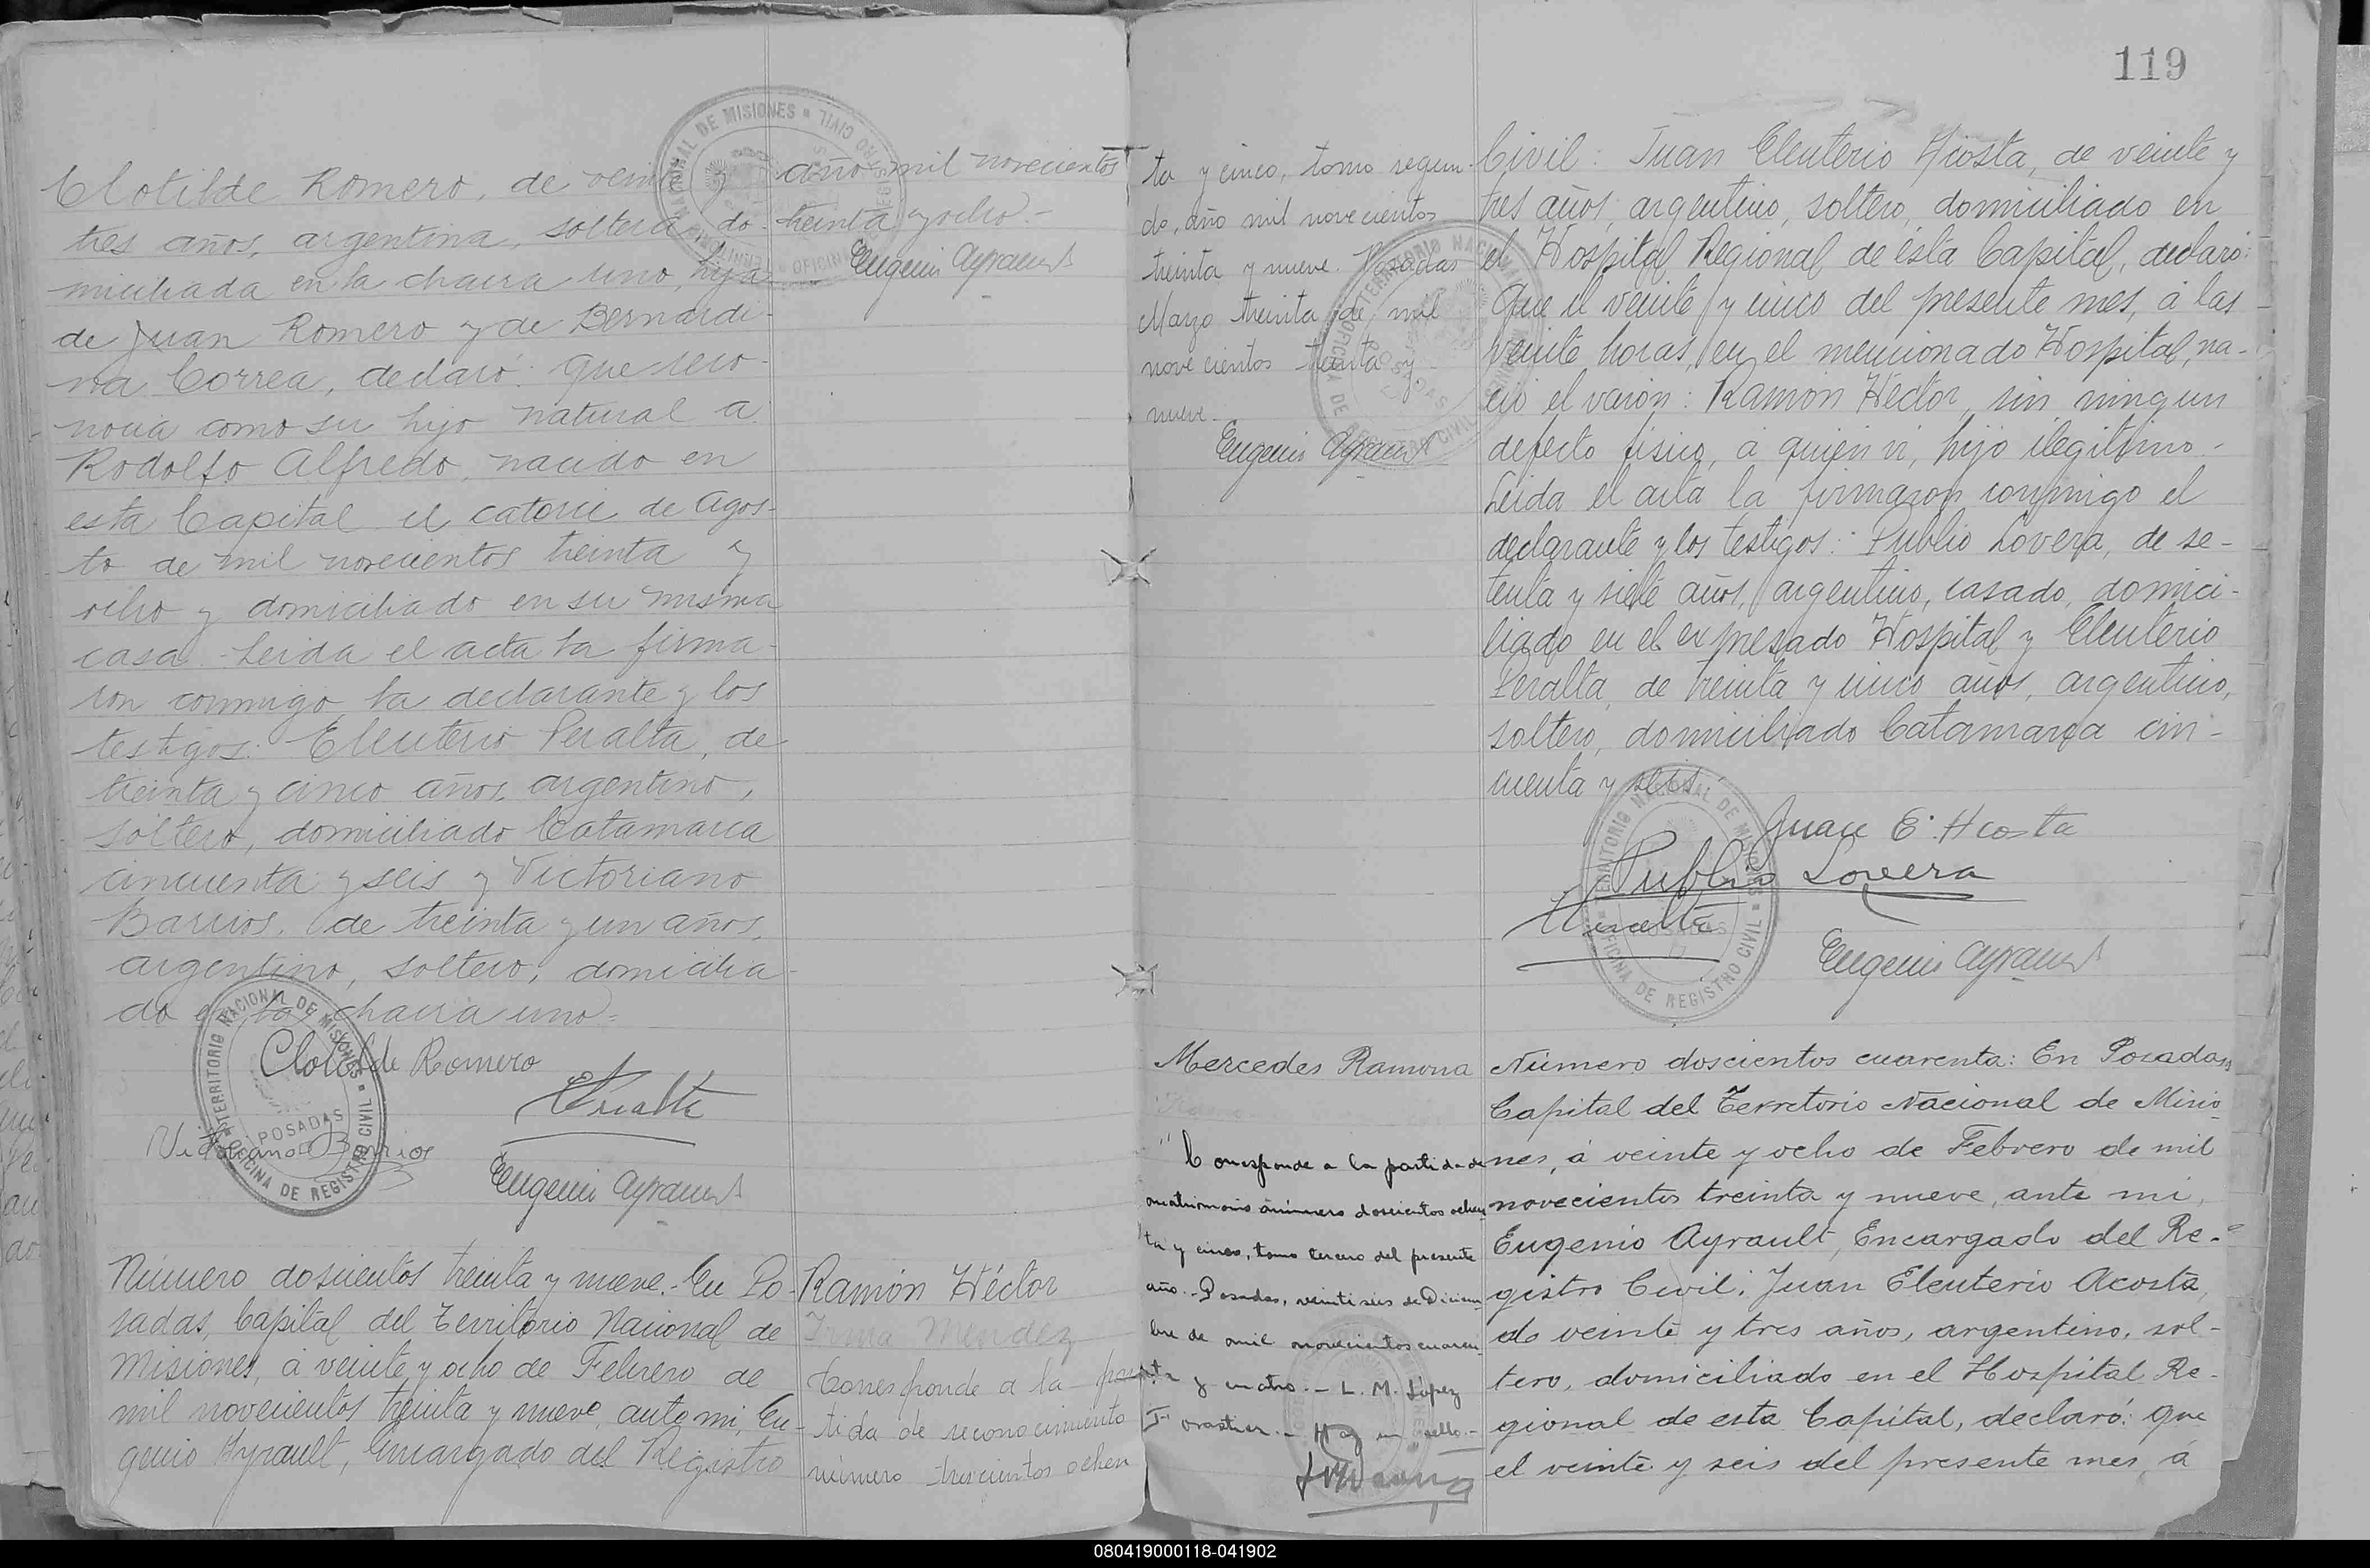 Clotilde Romero, de veinte y
tres años, argentina, soltera, do-
miciliada en la chacra uno, hija
de Juan Romero y de Bernardi-
na Correa, declaró: Que reco-
nocia como su hijo natural a
Rodolfo Alfredo, nacido en
esta Capital el catorce de Agos-
to de mil novecientos treinta y
ocho y domiciliado en su misma
casa.- Leida el acta la firma-
ron conmigo la declarante y los
testigos: Eleuterio Peralta, de
treinta y cinco años, argentino,
soltero, domiciliado Catamarca
cincuenta y seis y Victoriano
Barrios, de treinta y un años,
argentino, soltero, domicilia-
do en la chacra uno.-
Clotilde Romero
EPeralta
Victoriano Barrios
Eugenio Ayrault
TERRITORIO NACIONAL DE MISIONES
POSADAS
OFICINA DE REGISTRO CIVIL
año mil novecientos
treinta y ocho.-
Eugenio Ayrault
Número doscientos treinta y nueve.- En Po-
sadas, Capital del Territorio Nacional de
Misiones, á veinte y ocho de Febrero de
mil novecientos treinta y nueve, ante mi, Eu-
genio Ayrault, Encargado del Registro
Ramón Héctor
Irma Mendez
Corresponde a la par-
tida de reconocimiento
número trescientos ochen
119
ta y cinco, tomo segun-
do, año mil novecientos
treinta y nueve. Posadas
Marzo treinta de mil
novecientos treinta y
nueve.-
Eugenio Ayrault
Civil: Juan Eleuterio Acosta, de veinte y
tres años, argentino, soltero, domiciliado en
el Hospital Regional de ésta Capital, declaró:
Que el veinte y cinco del presente mes, á las
veinte horas, en el mencionado Hospital, na-
ció el varón: Ramón Héctor, sin ningun
defecto fisico, á quien vi, hijo ilegitimo.-
Leida el acta la firmaron conmigo el
declarante y los testigos: Publio Lovera, de se-
tenta y siete años, argentino, casado, domici-
liado en el expresado Hospital y Eleuterio
Peralta, de treinta y cinco años, argentino,
soltero, domiciliado Catamarca cin-
cuenta y seis.
Juan E. Acosta
Publio Lovera
EPeralta
Eugenio Ayrault
TERRITORIO NACIONAL DE MISIONES
POSADAS
OFICINA DE REGISTRO CIVIL
Mercedes Ramona
"Corresponde a la partida de
matrimonio número doscientos ochen
ta y cinco, tomo tercero del presente
año.- Posadas, veintiseis de Diciem
bre de mil novecientos cuaren
ta y cuatro.- L. M. López
Hay un sello.-
Número doscientos cuarenta: En Posadas,
Capital del Territorio Nacional de Misio-
nes, á veinte y ocho de Febrero de mil
novecientos treinta y nueve, ante mi,
Eugenio Ayrault, Encargado del Re-
gistro Civil: Juan Eleuterio Acosta,
de veinte y tres años, argentino, sol-
tero, domiciliado en el Hospital Re-
gional de esta Capital, declaró: Que
el veinte y seis del presente mes, á
080419000118-041902